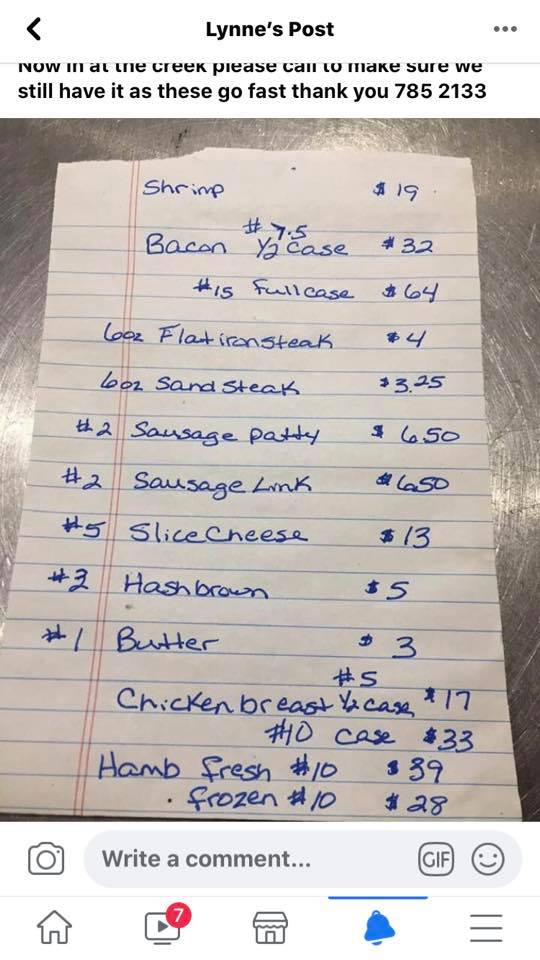 Lynne's Post
Now in at the creek please call to make sure we
still have it as these go fast thank you 785 2133
Shrimp $ 19
# 7.5
Bacon 1/2 case $ 32
#15 Full case $ 64
6oz Flat iron steak $ 4
6oz Sand Steak $ 3.25
#2 Sausage patty $ 6.50
#2 Sausage Link $ 6.50
#5 Slice Cheese $ 13
#3 Hashbrown $ 5
#1 Butter $ 3
#5
Chicken breast 1/2 case $ 17
#10 case $ 33
Hamb fresh #10 $ 39
. frozen #10 $ 28
Write a comment...
GIF
7